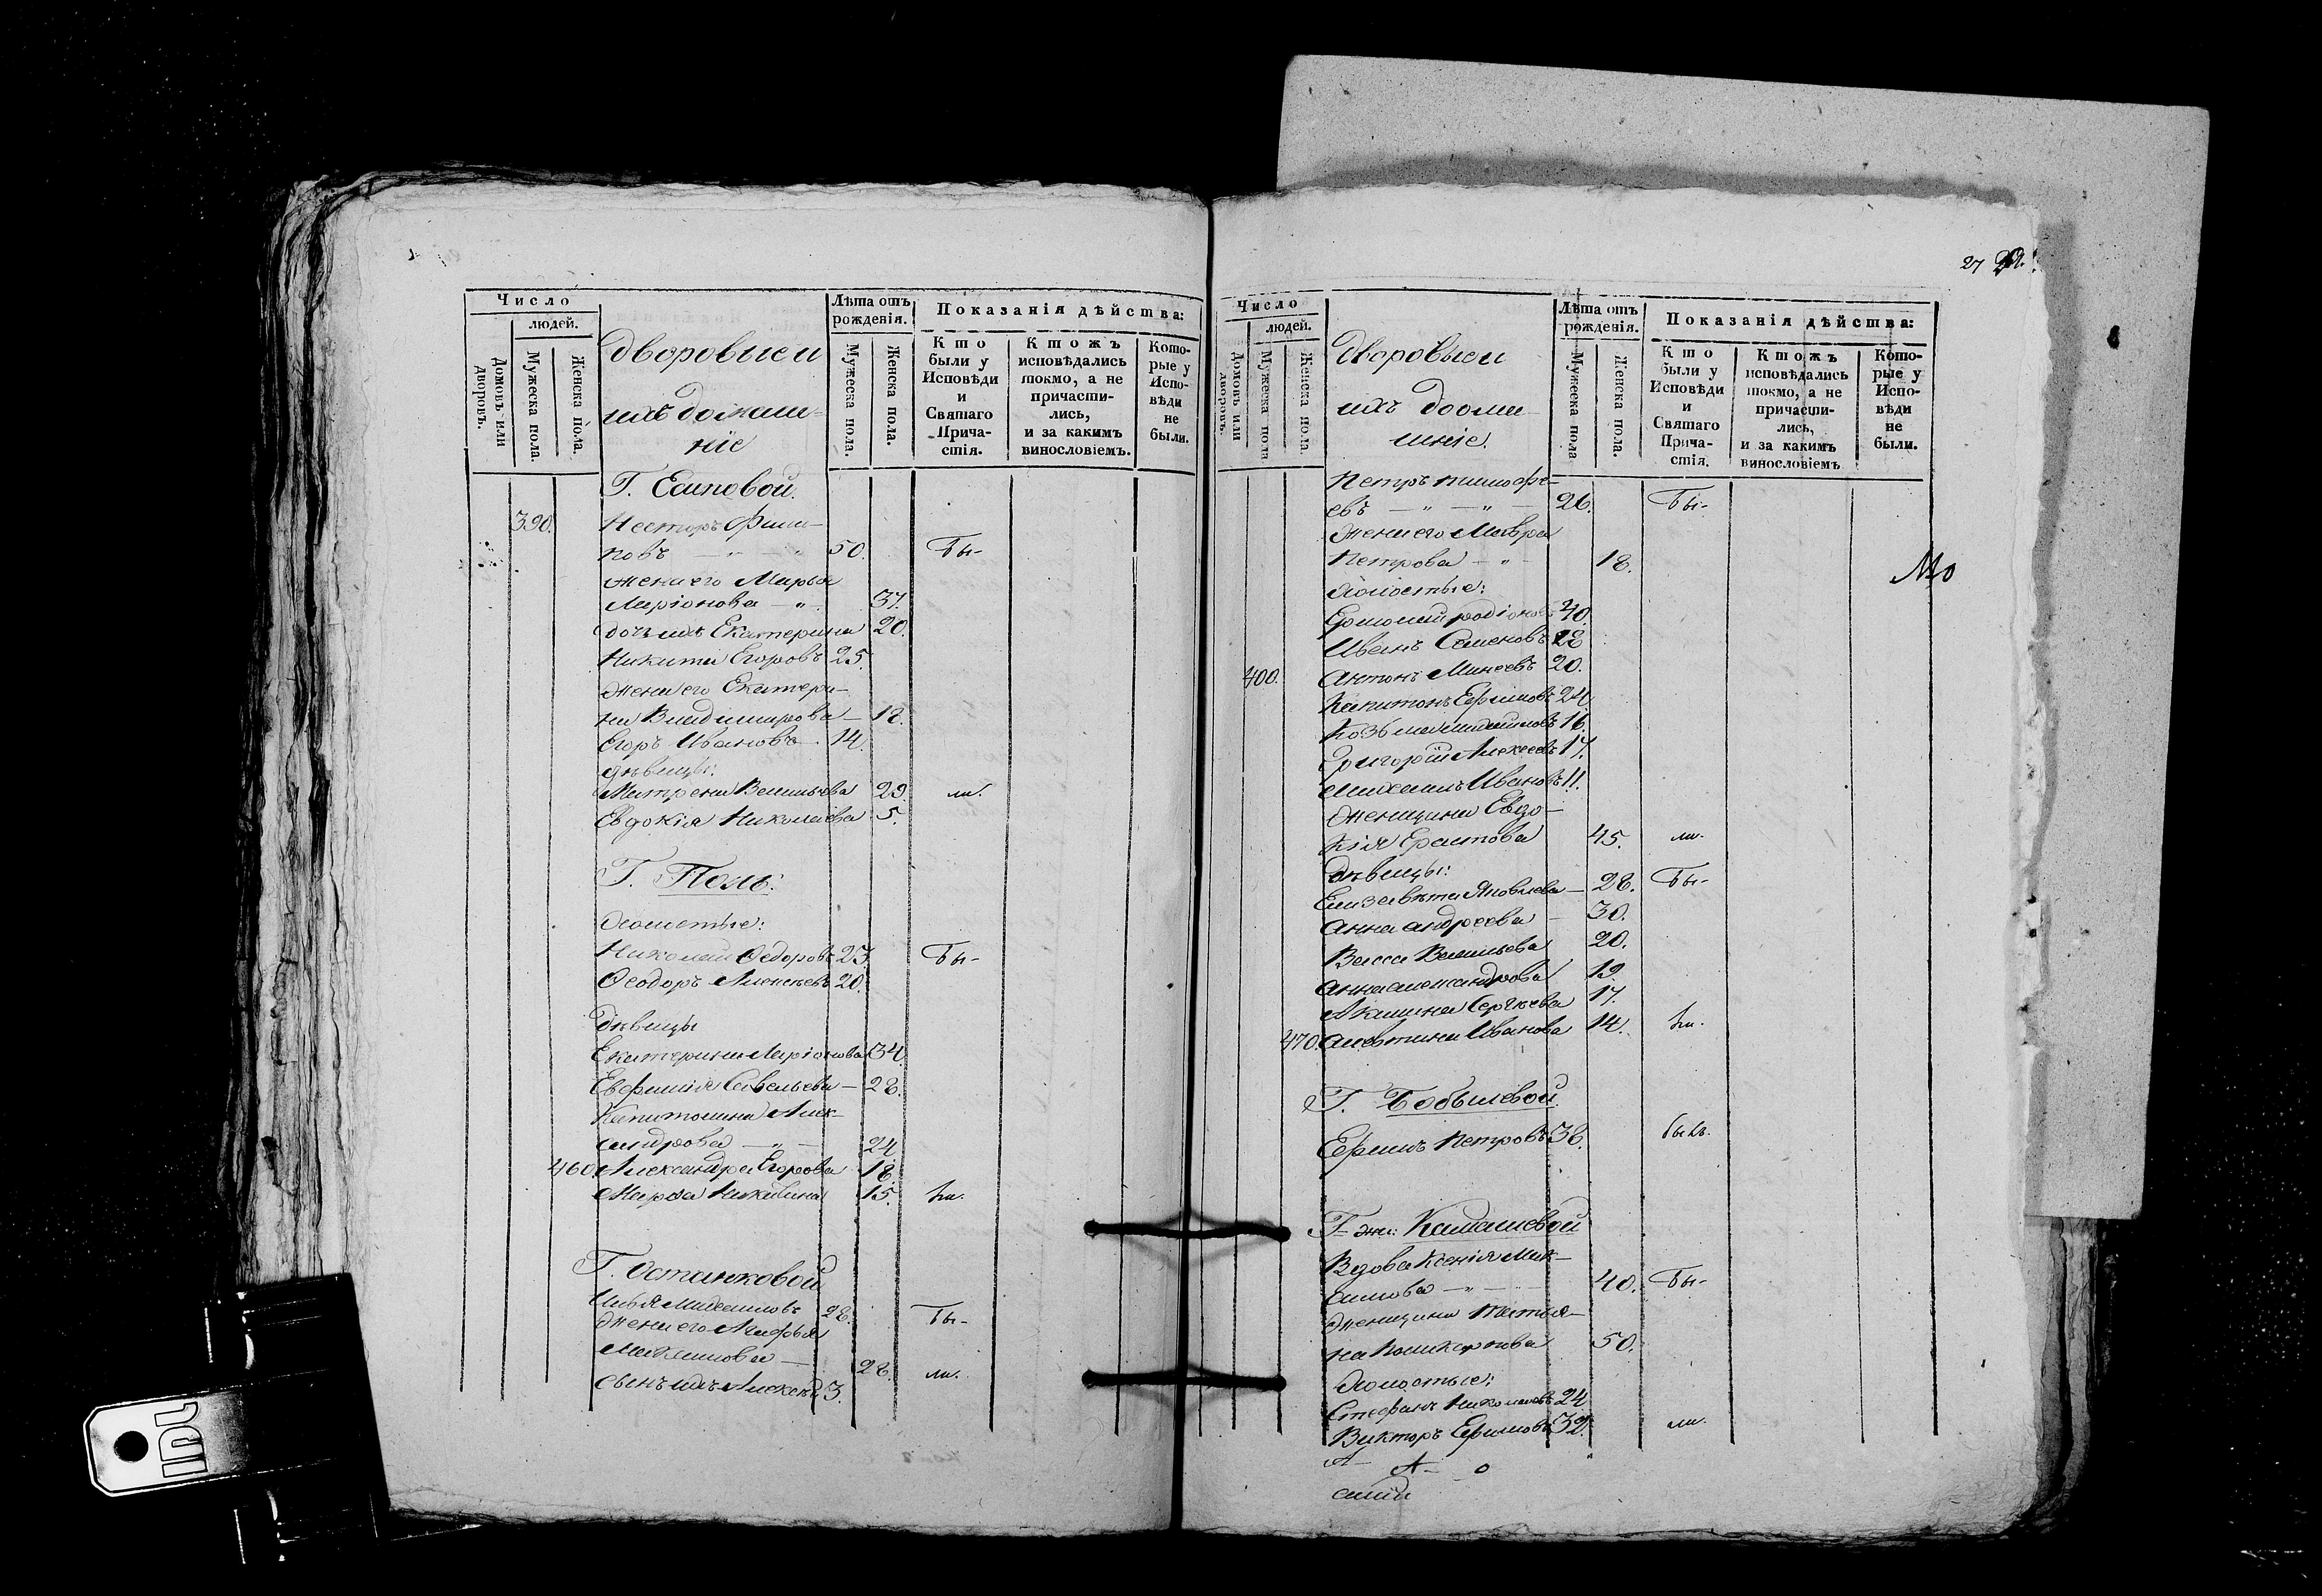 Число
людей.
Домовъ или дворовъ.
Мужеска пола.
Женска пола.
Дворовыеи
ихъ домаш-
ніе
Лѣта отъ рожденія.
Мужеска пола.
Женска пола.
Показанія дѣйства:
Кто были у Исповѣди и Святаго Прича-стія.
Ктожъ исповѣдались токмо, а не причасти-лись, и за какимъ винословіемъ.
Кото-рые у Испо-вѣди не были.
Г. Есиповой.
390. Несторъ Фили-
повъ — „ — „ 50. Бы-
жена его Марья
Ларіонова — „ 37.
дочь ихъ Екатерина 20.
Никита Егоровъ 25.
жена его Екатери-
на Владимирова — 18.
Егоръ Ивановъ — 14.
дѣвицы:
Матрена Васильева 29. ли.
Евдокія Николаева 5.
Г. Поль:
Холостые:
Николай Ѳедоровъ 23. Бы-
Ѳеодоръ Алексѣевъ 20.
Дѣвицы
Екатерина Ларіонова 34.
Евфимія Савельева — 28.
Капитолина Алек-
сандрова — „ — 24
460. Александра Егорова 18.
Марѳа Никитина 15. ли.
Г. Останковой
Илья Михайловъ 28. Бы-
жена его Агафья
Максимова — 28. ли.
сынъ ихъ Алексѣй 3.
27
Число
людей.
Домовъ или дворовъ.
Мужеска пола
Женска пола.
Дворовыеи
ихъ дома-
шніе.
Лѣта отъ рожденія.
Мужеска пола
Женска пола.
Показанія дѣйства:
Кто были у Исповѣди и Святаго Прича-стія.
Ктожъ исповѣдались токмо, а не причасти-лись, и за какимъ винословіемъ
Кото-рые у Испо-вѣди не были.
Петръ Тимофе-
евъ — „ — „ — 26. Бы-
Жена его Мавра
Петрова — „ - 18.
Холостые:
Ермолай Родіоновъ 40.
Иванъ Семеновъ 28
400. Антонъ Минеевъ 20.
Капитонъ Ефимовъ 24
Козьма Михайловъ 16.
Григорій Алексеевъ 17.
Михаилъ Ивановъ 11.
Женщина Евдо-
кія Ерастова 45. ли.
Дѣвицы:
Елизавѣта Яковлева — 28. Бы-
Анна Андреева — 30.
Васса Васильева 20.
Анна Александрова 19.
Акилина Сергѣева 17.
470. Алевтина Иванова 14. ли.
Г. Бобылевой.
Ефимъ Петровъ 38. былъ.
Г-жи: Кадашевой
Вдова Ксенія Мак-
симова — „ — 40. Бы-
Женщина Татья-
на Поликарпова 50.
Холостые:
Стефанъ Николаевъ 24
Викторъ Ефимовъ 32. ли.